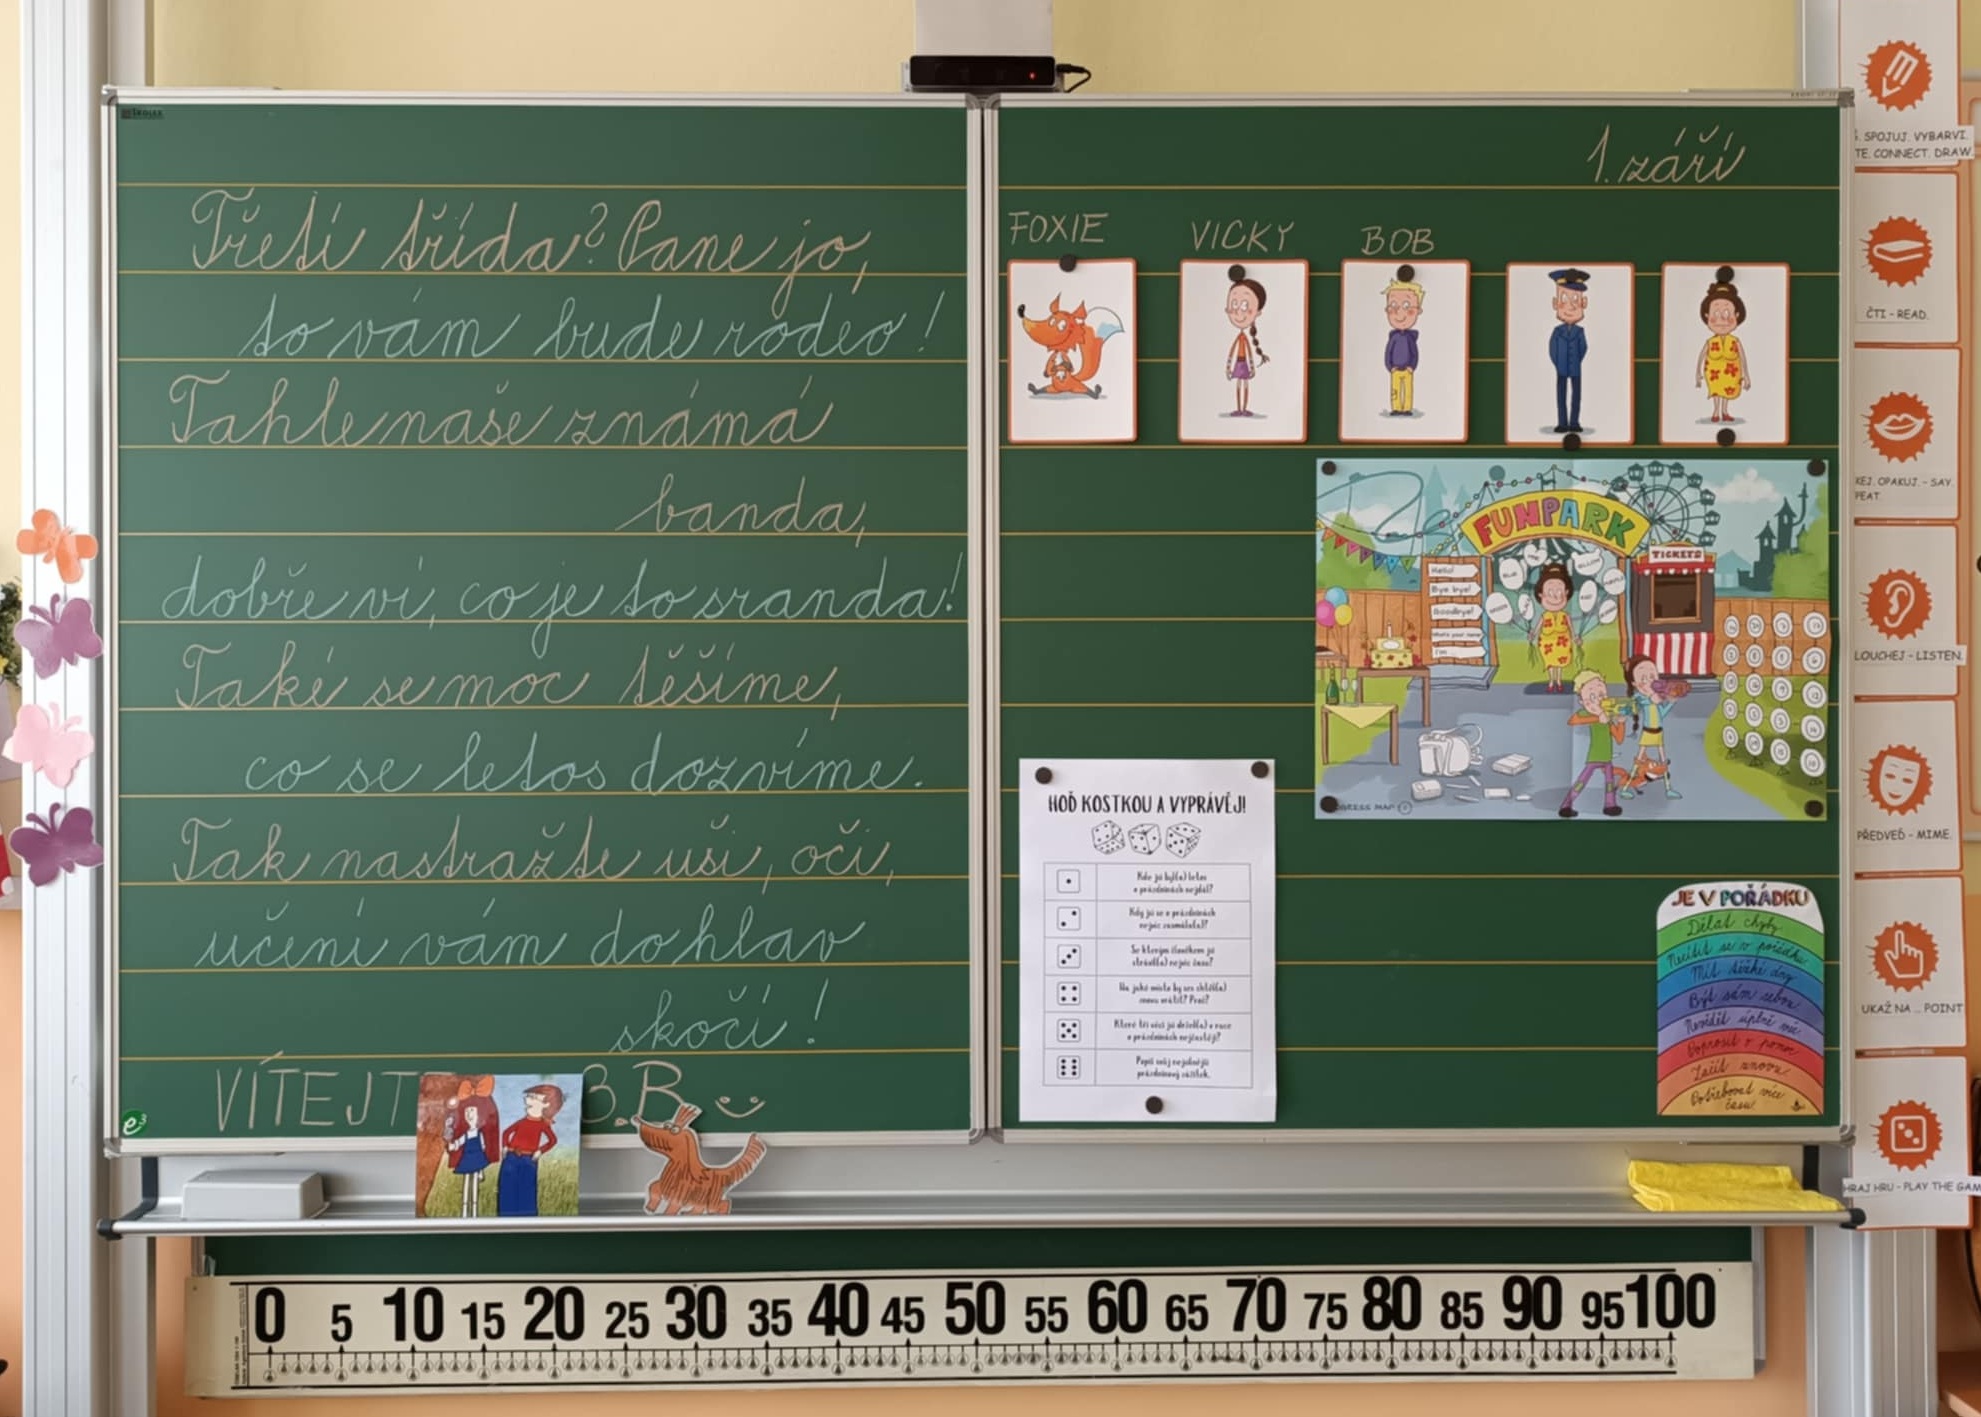 Třetí třída? Pane jo,
to vám bude rodeo!
Tahle naše známá
banda,
dobře ví, co je to sranda!
Také se moc těšíme,
co se letos dozvíme.
Tak nastražte uši, oči,
učení vám do hlav
skočí!
VÍTEJT
3.B
1. září
FOXIE
VICKY
BOB
FUNPARK
TICKETS
Hello!
Bye bye!
Goodbye!
What's your name
I'm
HOĎ KOSTKOU A VYPRÁVĚJ!
Kde jsi byl(a) letos
o prázdninách nejdál?
Kdy jsi se o prázdninách
nejvíc zasmál(a)?
Se kterým člověkem jsi
strávil(a) nejvíc času?
Na jaké místo by ses chtěl(a)
znovu vrátit? Proč?
Které tři věci jsi držel(a) v ruce
o prázdninách nejčastěji?
Popiš svůj nejsilnější
prázdninový zážitek.
JE V POŘÁDKU
Dělat chyby
Necítit se v pořádku
Mít těžké dny
Být sám sebou
Nevědět úplně vše
Poprosit o pomoc
Začít znovu
Potřebovat více
času
SPOJUJ. VYBARVI.
TE. CONNECT. DRAW.
ČTI - READ.
KEJ. OPAKUJ. - SAY.
PEAT.
LOUCHEJ - LISTEN.
PŘEDVEĎ - MIME.
UKAŽ NA ... POINT
HRAJ HRU - PLAY THE GAM
0 5 10 15 20 25 30 35 40 45 50 55 60 65 70 75 80 85 90 95 100